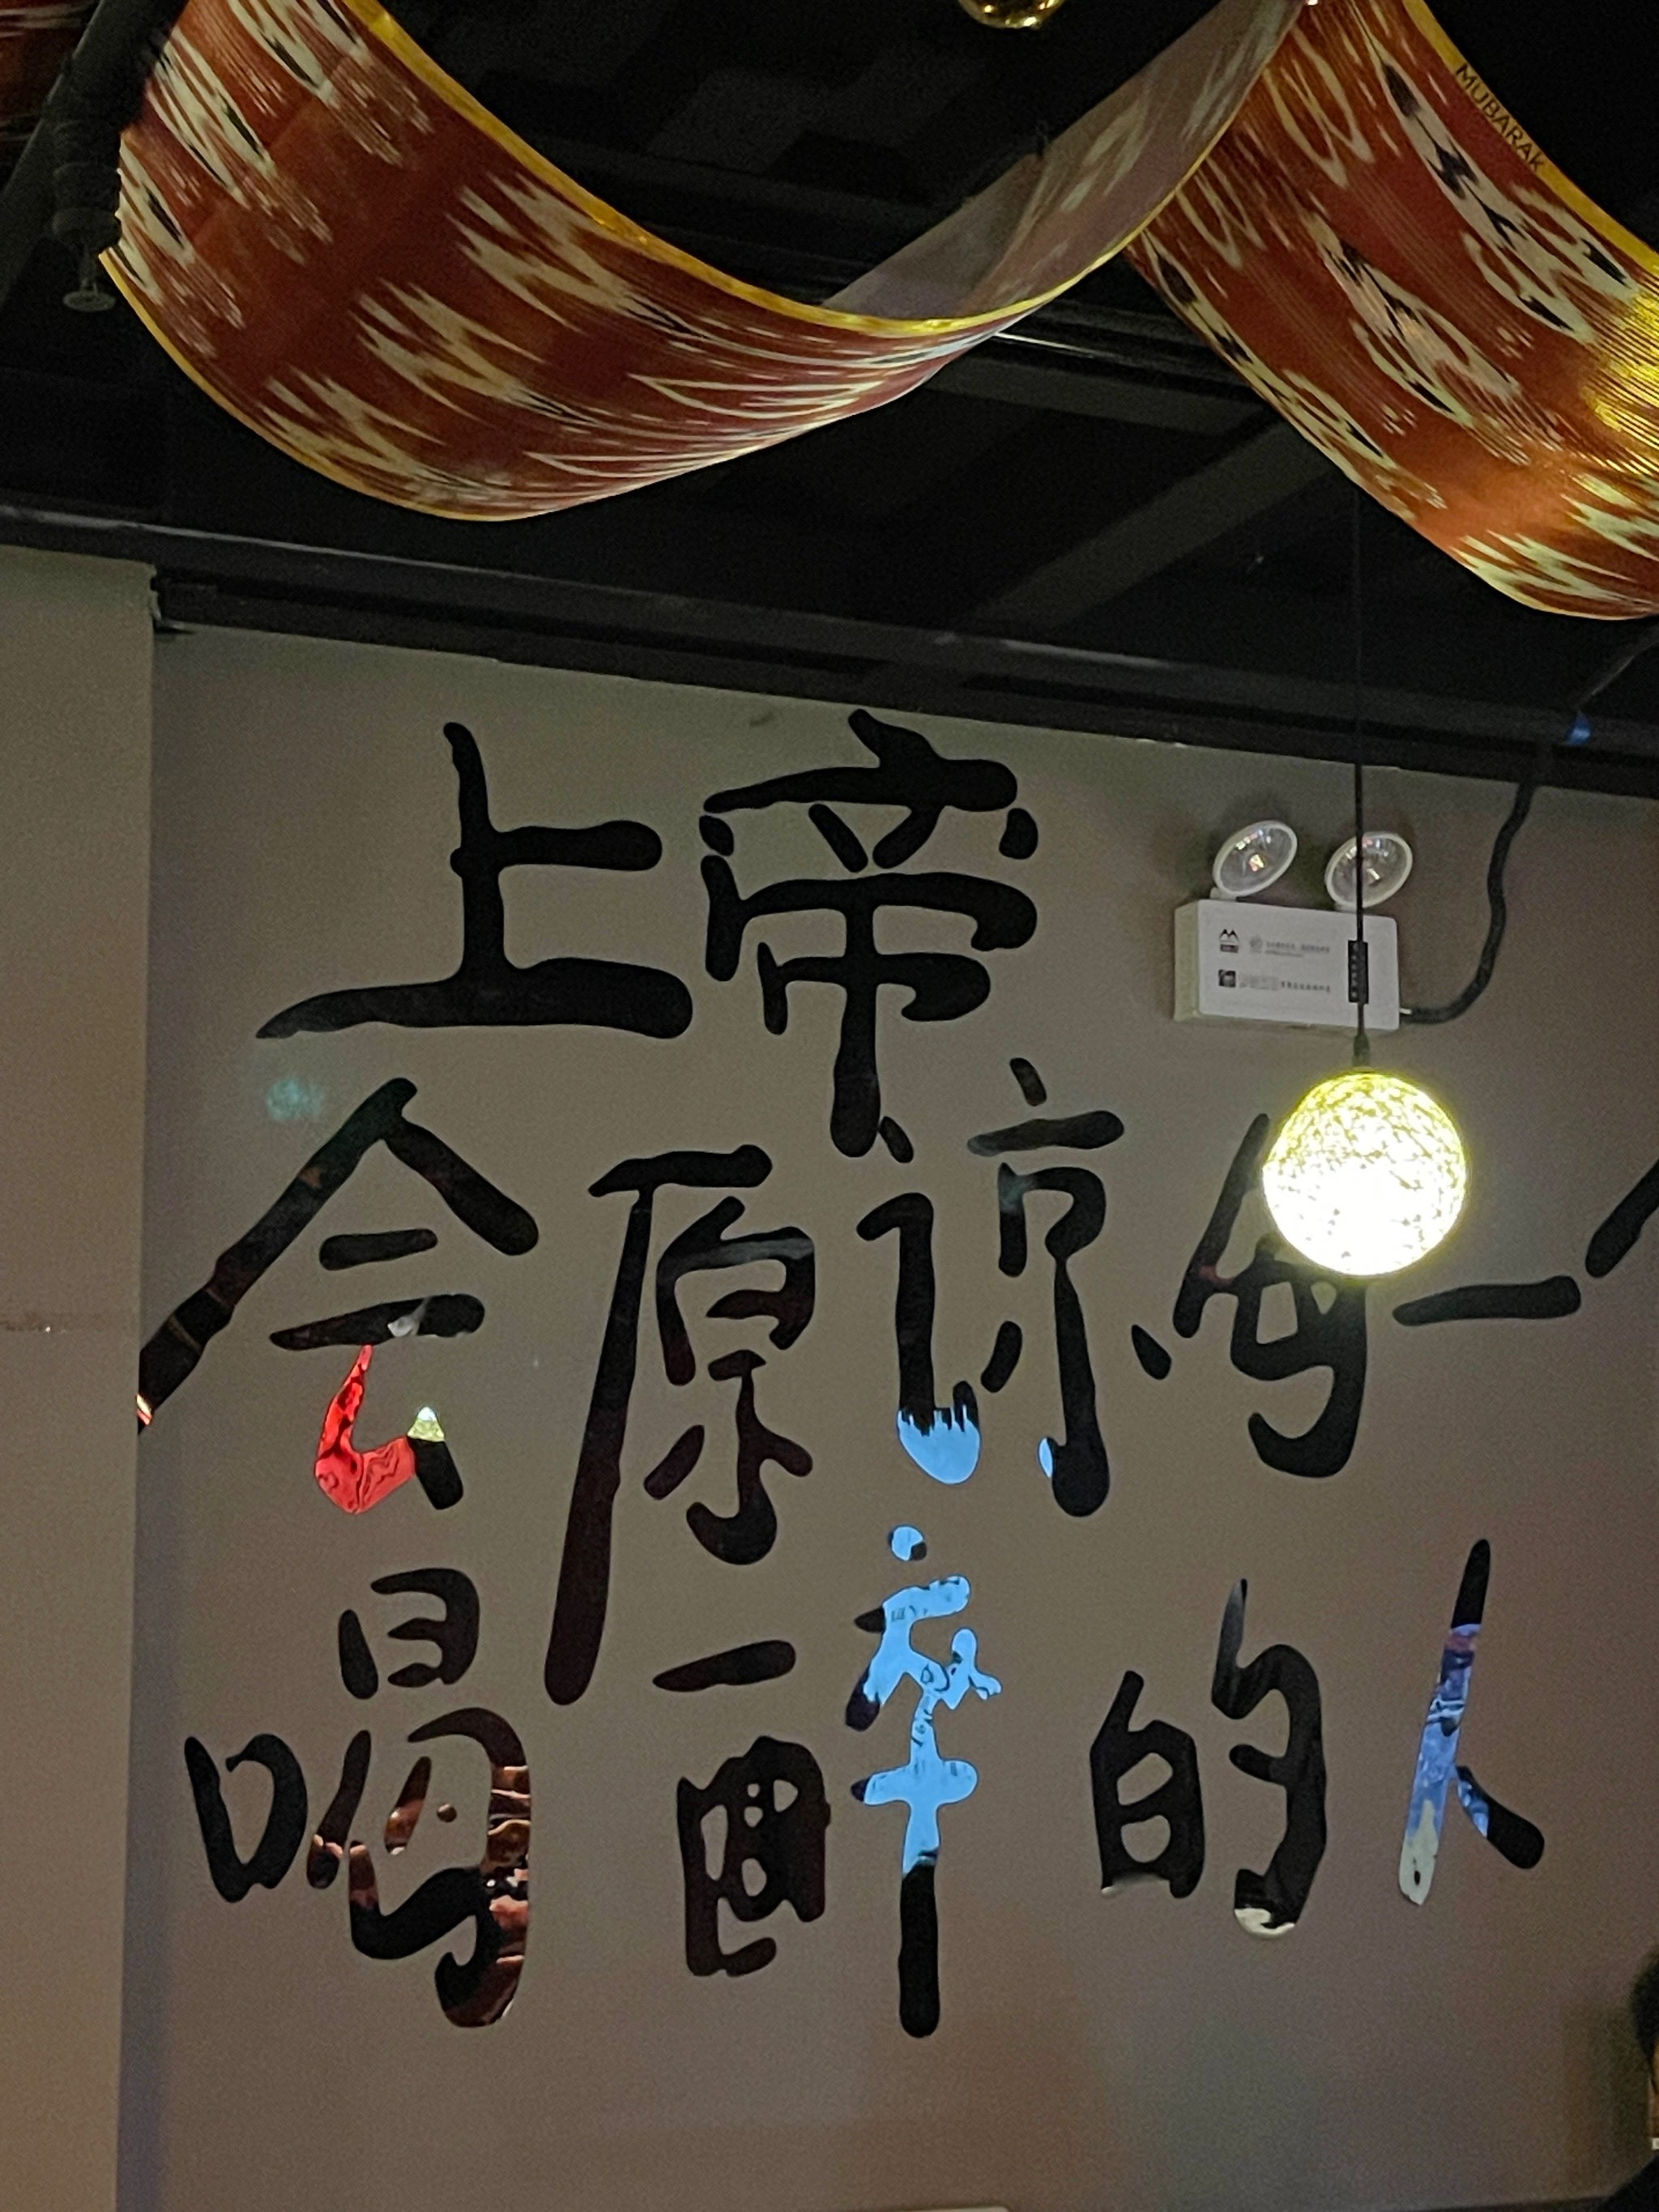 MUBARAK
上帝
会原谅每一
喝醉的人